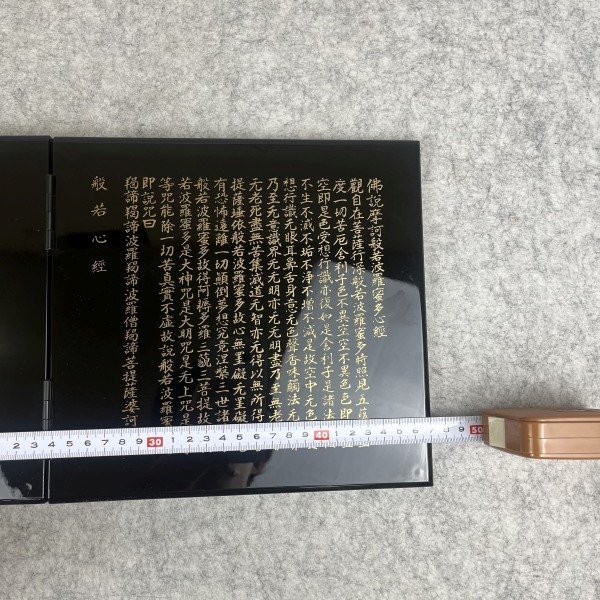 佛説摩訶般若波羅蜜多心經
觀自在菩薩行深般若波羅蜜多時照見五蘊
度一切苦厄舍利子色不異空空不異色色即
空即是色受想行識亦復如是舍利子是諸法
不生不滅不垢不淨不增不減是故空中无色
想行識无眼耳鼻舌身意无色聲香味觸法无
乃至无意識界无无明亦无无明盡乃至無老
无老死盡無苦集滅道无智亦无得以無所得
提薩埵依般若波羅蜜多故心無罣礙无罣礙
有恐怖遠離一切顛倒夢想究竟涅槃三世諸
般若波羅蜜多故得阿耨多羅三藐三菩提故
若波羅蜜多是大神咒是大明咒是无上咒是
等咒能除一切苦真實不虛故説般若波羅蜜
即説咒曰
羯諦羯諦波羅羯諦波羅僧羯諦菩提薩婆訶
般若心經
2 3 4 5 6 7 8 9 30 1 2 3 4 5 6 7 8 9 40 1 2 3 4 5 6 7 8 9 50